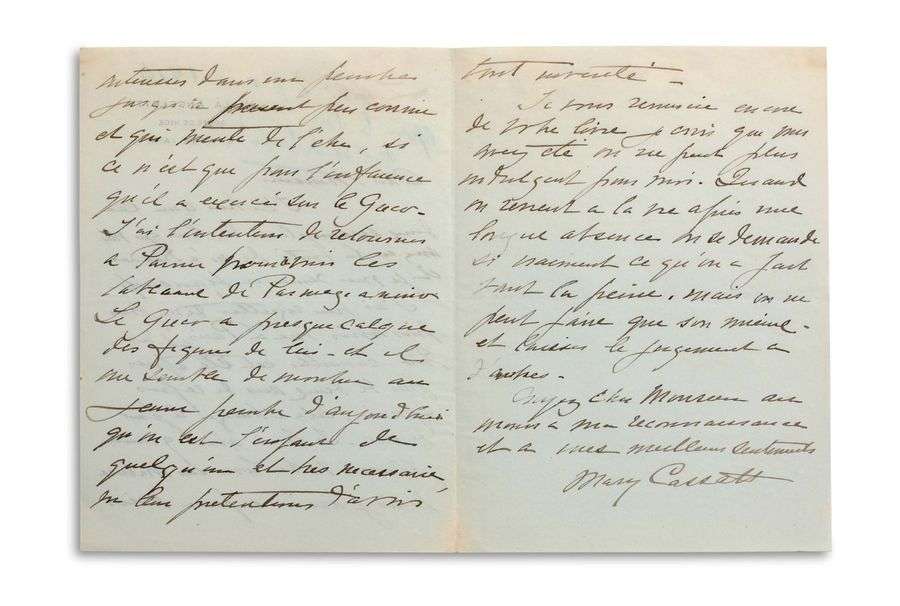 dans un peintre
jusqu'à présent peu connu
et qui merite de l'être, si
ce n'est que pour l'influence
qu'il a exercée sur le Greco -
J'ai l'intention de retourner
a Parme pour voir les
tableaux de Parmegianino
Le Greco a presque calqué
des figures de lui - et il
me semble de montrer au
jeune peintre d'aujourd'hui
qu'on est l'enfant de
quelqu'un est tres necessaire
vu leur pretentions d'avoir
tout inventé -
Je vous remercie encore
de votre livre je crois que vous
avez été on ne peut plus
indulgent pour moi. Quand
on revient a la vie après une
longue absence on se demande
si vraiment ce qu'on a fait
vaut la peine, mais on ne
peut faire que son mieux -
et laisser le jugement a
d'autres -
Croyez Cher Monsieur au
moins a ma reconnaissance
et a mes meilleurs sentiments
Mary Cassatt